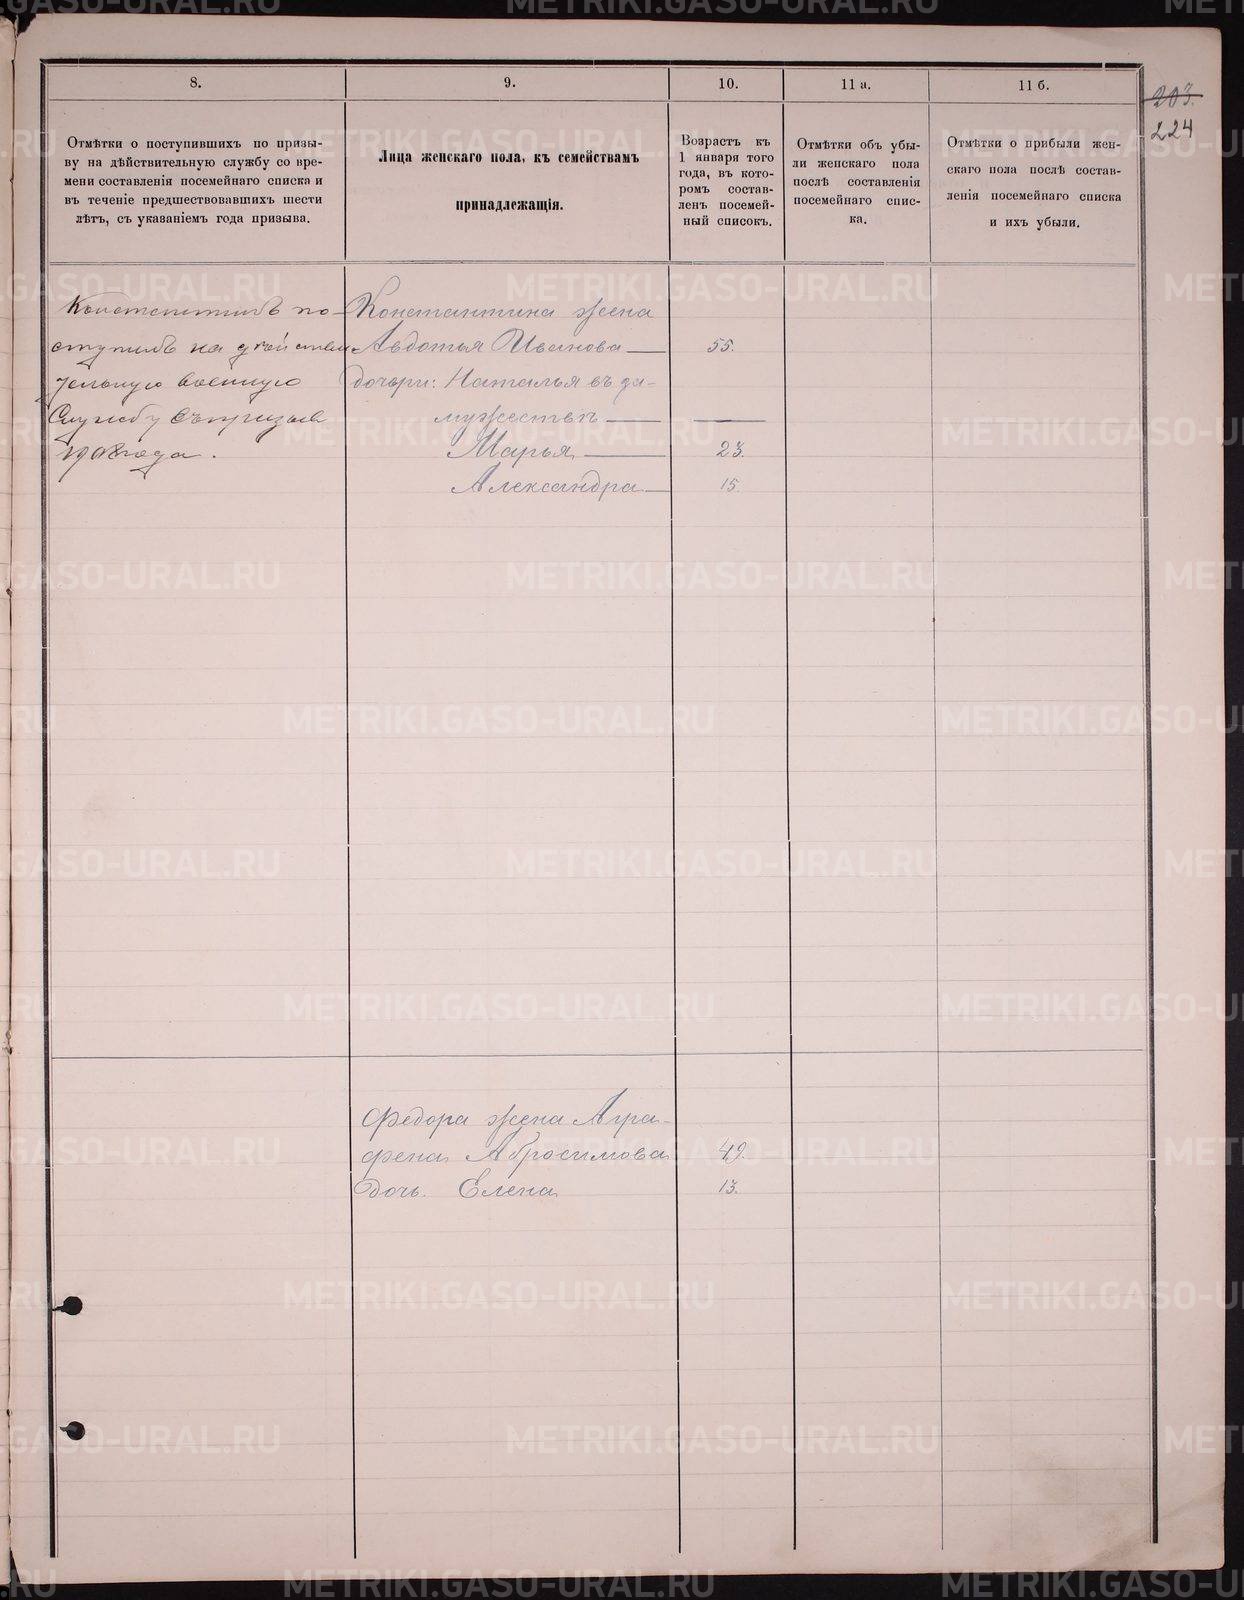 203.
224
8.
Отмѣтки о поступившихъ по призы-
ву на дѣйствительную службу со вре-
мени составленія посемейнаго списка и
въ теченіе предшествовавшихъ шести
лѣтъ, съ указаніемъ года призыва.
9.
Лица женскаго пола, къ семействамъ
принадлежащія.
10.
Возрастъ къ
1 января того
года, въ кото-
ромъ состав-
ленъ посемей-
ный списокъ.
11 а.
Отмѣтки объ убы-
ли женскаго пола
послѣ составленія
посемейнаго спис-
ка.
11 б.
Отмѣтки о прибыли жен-
скаго пола послѣ состав-
ленія посемейнаго списка
и ихъ убыли.
Константинъ по-
ступилъ на дѣйстви-
тельную военную
службу съ призыва
1908 года.
Константина жена
Авдотья Иванова — 55.
дочери: Наталья въ за-
мужествѣ — —
Марья — 23.
Александра — 15.
Федора жена Агра-
фена Абросимова 49.
дочь. Елена 13.
METRIKI.GASO-URAL.RU